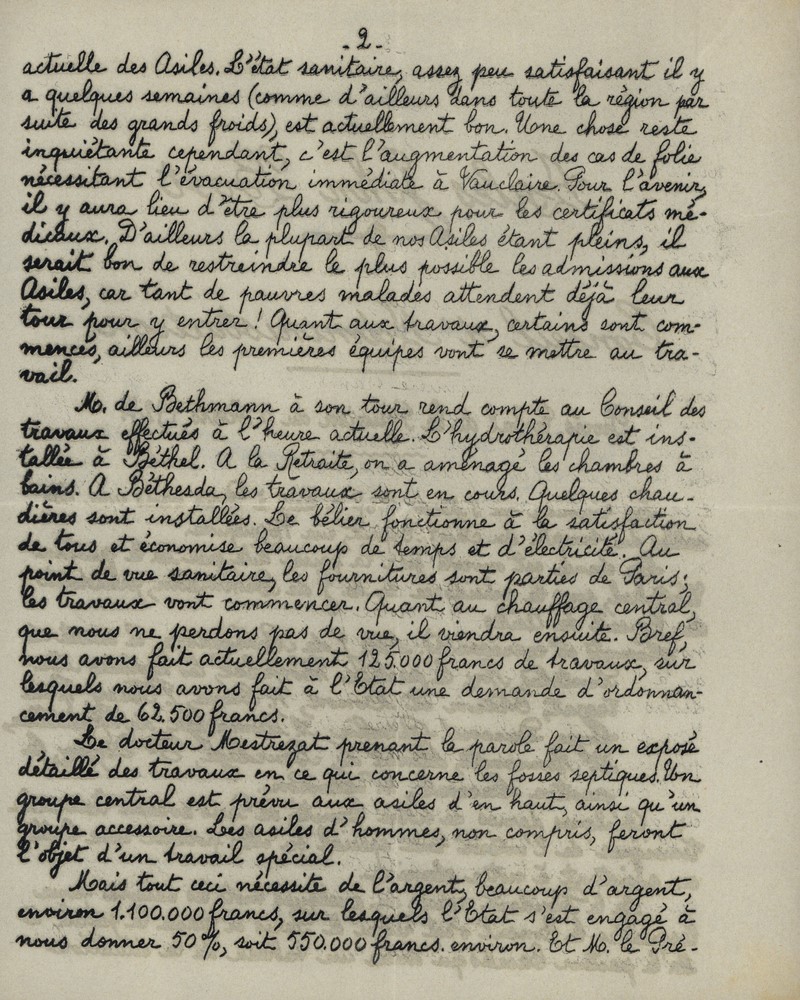 - 2 -
actuelle des Asiles. L'état sanitaire, assez peu satisfaisant il y
a quelques semaines (comme d'ailleurs dans toute la région par
suite des grands froids), est actuellement bon. Une chose reste
inquiétante cependant, c'est l'augmentation des cas de folie
nécessitant l'évacuation immédiate à Vauclaire. Pour l'avenir,
il y aura lieu d'être plus rigoureux pour les certificats mé-
dicaux. D'ailleurs la plupart de nos Asiles étant pleins, il
serait bon de restreindre le plus possible les admissions aux
Asiles, car tant de pauvres malades attendent déjà leur
tour pour y entrer ! Quant aux travaux, certains sont com-
mencés, ailleurs les premières équipes vont se mettre au tra-
vail.
M. de Bethmann à son tour rend compte au Conseil des
travaux effectués à l'heure actuelle. L'hydrothérapie est ins-
tallée à Béthel. A la Retraite, on a aménagé les chambres à
bains. A Béthesda, les travaux sont en cours. Quelques chau-
dières sont installées. Le bélier fonctionne à la satisfaction
de tous et économise beaucoup de temps et d'électricité. Au
point de vue sanitaire, les fournitures sont parties de Paris ;
les travaux vont commencer. Quant au chauffage central,
que nous ne perdons pas de vue, il viendra ensuite. Bref,
nous avons fait actuellement 125.000 francs de travaux, sur
lesquels nous avons fait à l'Etat une demande d'ordonnan-
cement de 62.500 francs.
Le docteur Mestrezat prenant la parole fait un exposé
détaillé des travaux en ce qui concerne les fosses septiques. Un
groupe central est prévu aux asiles d'en haut, ainsi qu'un
groupe accessoire. Les asiles d'hommes, non compris, feront
l'objet d'un travail spécial.
Mais tout ceci nécessite de l'argent, beaucoup d'argent,
environ 1.100.000 francs, sur lesquels l'Etat s'est engagé à
nous donner 50%, soit 550.000 francs. environ. Et M. le Pré-